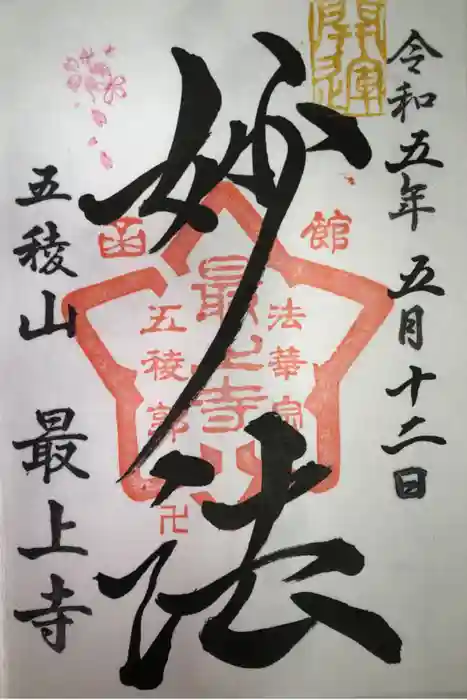 開運
令和五年 五月十二日
妙法
函館
最上寺
法華宗
五稜郭
卍
五稜山 最上寺